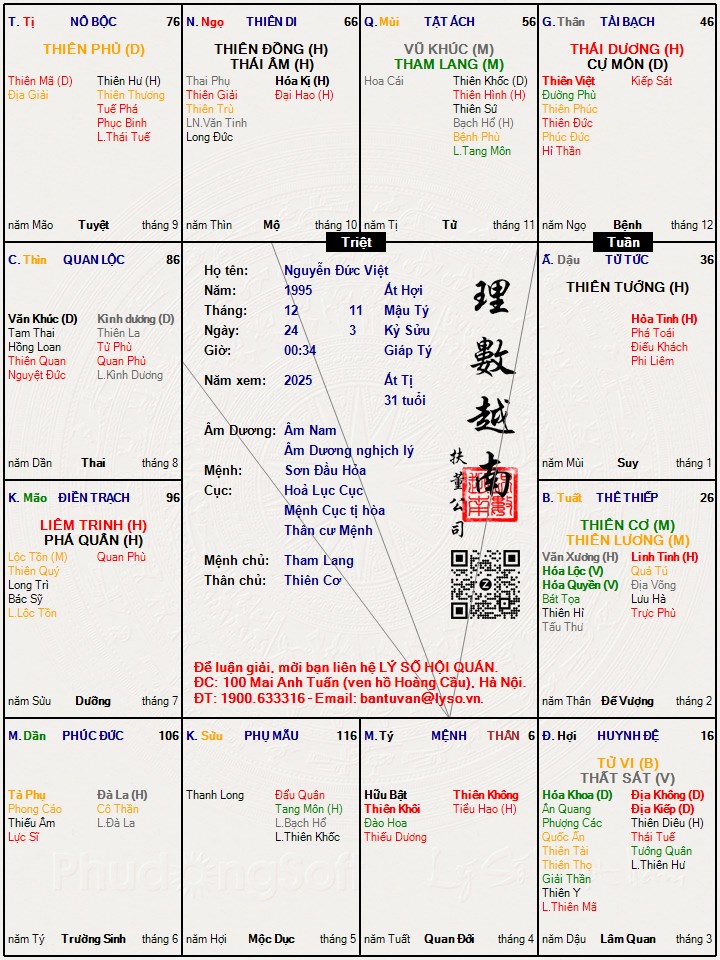 T. Tị NÔ BỘC 76
THIÊN PHỦ (D)
Thiên Mã (D) Thiên Hư (H)
Địa Giải Thiên Thương
Tuế Phá
Phục Binh
L.Thái Tuế
năm Mão Tuyệt tháng 9
N. Ngọ THIÊN DI 66
THIÊN ĐỒNG (H)
THÁI ÂM (H)
Thai Phụ Hóa Kị (H)
Thiên Giải Đại Hao (H)
Thiên Trù
LN.Văn Tinh
Long Đức
năm Thìn Mộ tháng 10
Q. Mùi TẬT ÁCH 56
VŨ KHÚC (M)
THAM LANG (M)
Hoa Cái Thiên Khốc (D)
Thiên Hình (H)
Thiên Sứ
Bạch Hổ (H)
Bệnh Phù
L.Tang Môn
năm Tị Tử tháng 11
G. Thân TÀI BẠCH 46
THÁI DƯƠNG (H)
CỰ MÔN (D)
Thiên Việt Kiếp Sát
Đường Phù
Thiên Phúc
Thiên Đức
Phúc Đức
Hỉ Thần
năm Ngọ Bệnh tháng 12
Triệt
Tuần
C. Thìn QUAN LỘC 86
Văn Khúc (D) Kình dương (D)
Tam Thai Thiên La
Hồng Loan Tử Phù
Thiên Quan Quan Phủ
Nguyệt Đức L.Kình Dương
năm Dần Thai tháng 8
Họ tên: Nguyễn Đức Việt
Năm: 1995 Ất Hợi
Tháng: 12 11 Mậu Tý
Ngày: 24 3 Kỷ Sửu
Giờ: 00:34 Giáp Tý
Năm xem: 2025 Ất Tị
31 tuổi
Âm Dương: Âm Nam
Âm Dương nghịch lý
Mệnh: Sơn Đầu Hỏa
Cục: Hoả Lục Cục
Mệnh Cục tị hòa
Thân cư Mệnh
Mệnh chủ: Tham Lang
Thân chủ: Thiên Cơ
理數越南
扶董公司
Để luận giải, mời bạn liên hệ LÝ SỐ HỘI QUÁN.
ĐC: 100 Mai Anh Tuấn (ven hồ Hoàng Cầu), Hà Nội.
ĐT: 1900.633316 - Email: bantuvan@lyso.vn.
Ấ. Dậu TỬ TỨC 36
THIÊN TƯỚNG (H)
Hỏa Tinh (H)
Phá Toái
Điếu Khách
Phi Liêm
năm Mùi Suy tháng 1
K. Mão ĐIỀN TRẠCH 96
LIÊM TRINH (H)
PHÁ QUÂN (H)
Lộc Tồn (M) Quan Phù
Thiên Quý
Long Trì
Bác Sỹ
L.Lộc Tồn
năm Sửu Dưỡng tháng 7
B. Tuất THÊ THIẾP 26
THIÊN CƠ (M)
THIÊN LƯƠNG (M)
Văn Xương (H) Linh Tinh (H)
Hóa Lộc (V) Quả Tú
Hóa Quyền (V) Địa Võng
Bát Tọa Lưu Hà
Thiên Hỉ Trực Phù
Tấu Thư
năm Thân Đế Vượng tháng 2
M. Dần PHÚC ĐỨC 106
Tả Phụ Đà La (H)
Phong Cáo Cô Thần
Thiếu Âm L.Đà La
Lực Sĩ
năm Tý Trường Sinh tháng 6
K. Sửu PHỤ MẪU 116
Thanh Long Đẩu Quân
Tang Môn (H)
L.Bạch Hổ
L.Thiên Khốc
năm Hợi Mộc Dục tháng 5
M. Tý MỆNH THÂN 6
Hữu Bật Thiên Không
Thiên Khôi Tiểu Hao (H)
Đào Hoa
Thiếu Dương
năm Tuất Quan Đới tháng 4
Đ. Hợi HUYNH ĐỆ 16
TỬ VI (B)
THẤT SÁT (V)
Hóa Khoa (D) Địa Không (D)
Ân Quang Địa Kiếp (D)
Phượng Các Thiên Diêu (H)
Quốc Ấn Thái Tuế
Thiên Tài Tướng Quân
Thiên Thọ L.Thiên Hư
Giải Thần
Thiên Y
L.Thiên Mã
năm Dậu Lâm Quan tháng 3